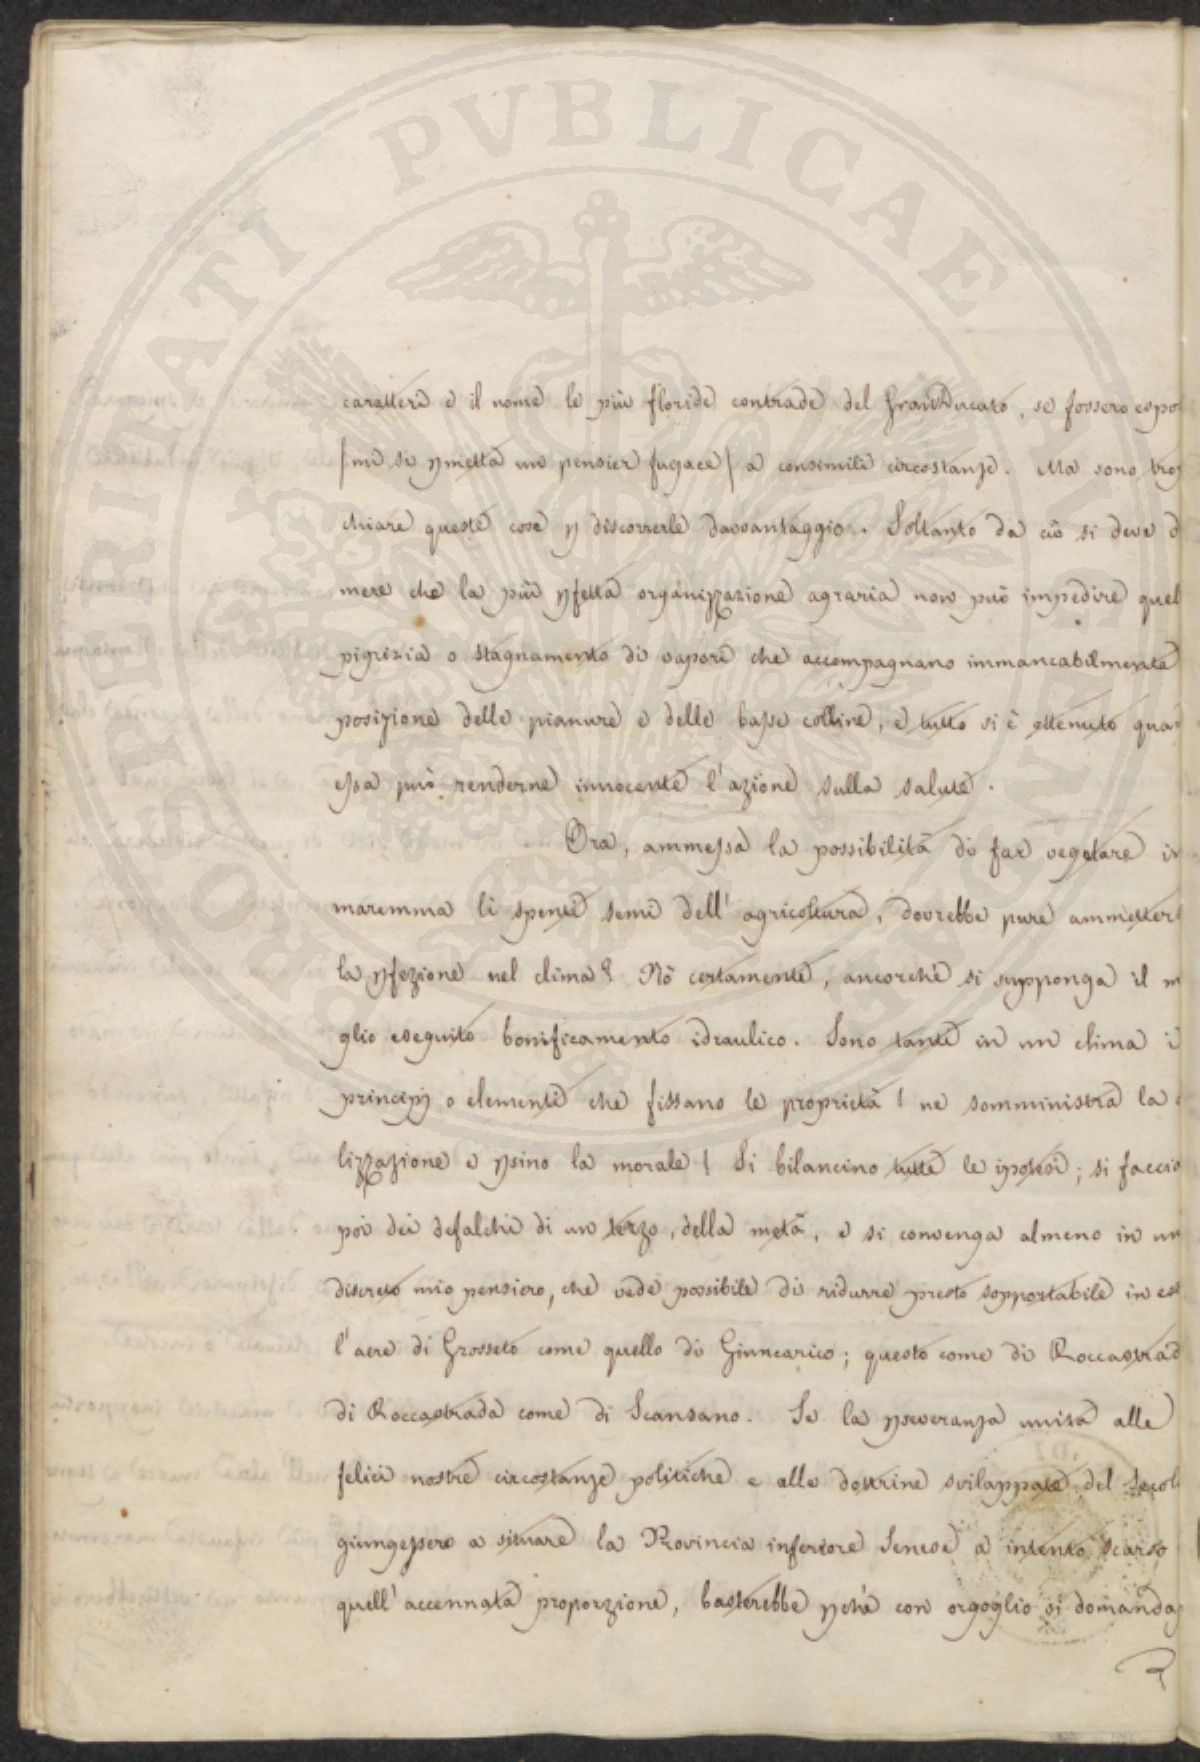 PROSPERITATI PVBLICAE AVGENDAE
caratteri e il nome le più floride contrade del GranDucato, se fossero espo
(mi si pmetta un pensier fugace) a consimili circostanze. Ma sono trop
chiare queste cose p discorrerle davvantaggio. Soltanto da ciò si deve d
mere che la più pfetta organizzazione agraria non può impedire quel
pigrizia o stagnamento di vapori che accompagnano immancabilmente
posizione delle pianure e delle basse colline, e tutto si è ottenuto quan
essa può renderne innocente l'azione sulla salute.
Ora, ammessa la possibilità di far vegetare in
maremma li spenti semi dell'agricoltura, dovrebbe pure ammetter
la pfezione nel clima? Nò certamente, ancorchè si supponga il m
glio eseguito bonificamento idraulico. Sono tanti in un clima i
principj o elementi che fissano le proprietà! ne somministra la
lizzazione e psino la morale! Si bilancino tutte le ipotesi; si faccio
poi dei defalchi di un terzo, della metà, e si convenga almeno in un
discreto mio pensiero, che vede possibile di ridurre presto sopportabile in est
l'aere di Grosseto come quello di Giuncarico; questo come di Roccastrad
di Roccastrada come di Scansano. Se la pseveranza unita alle
felici nostre circostanze politiche e alle dottrine sviluppate del Secol
giungessero a situare la Provincia inferiore Senese a intento scarso
quell'accennata proporzione, basterebbe pchè con orgoglio si domandas